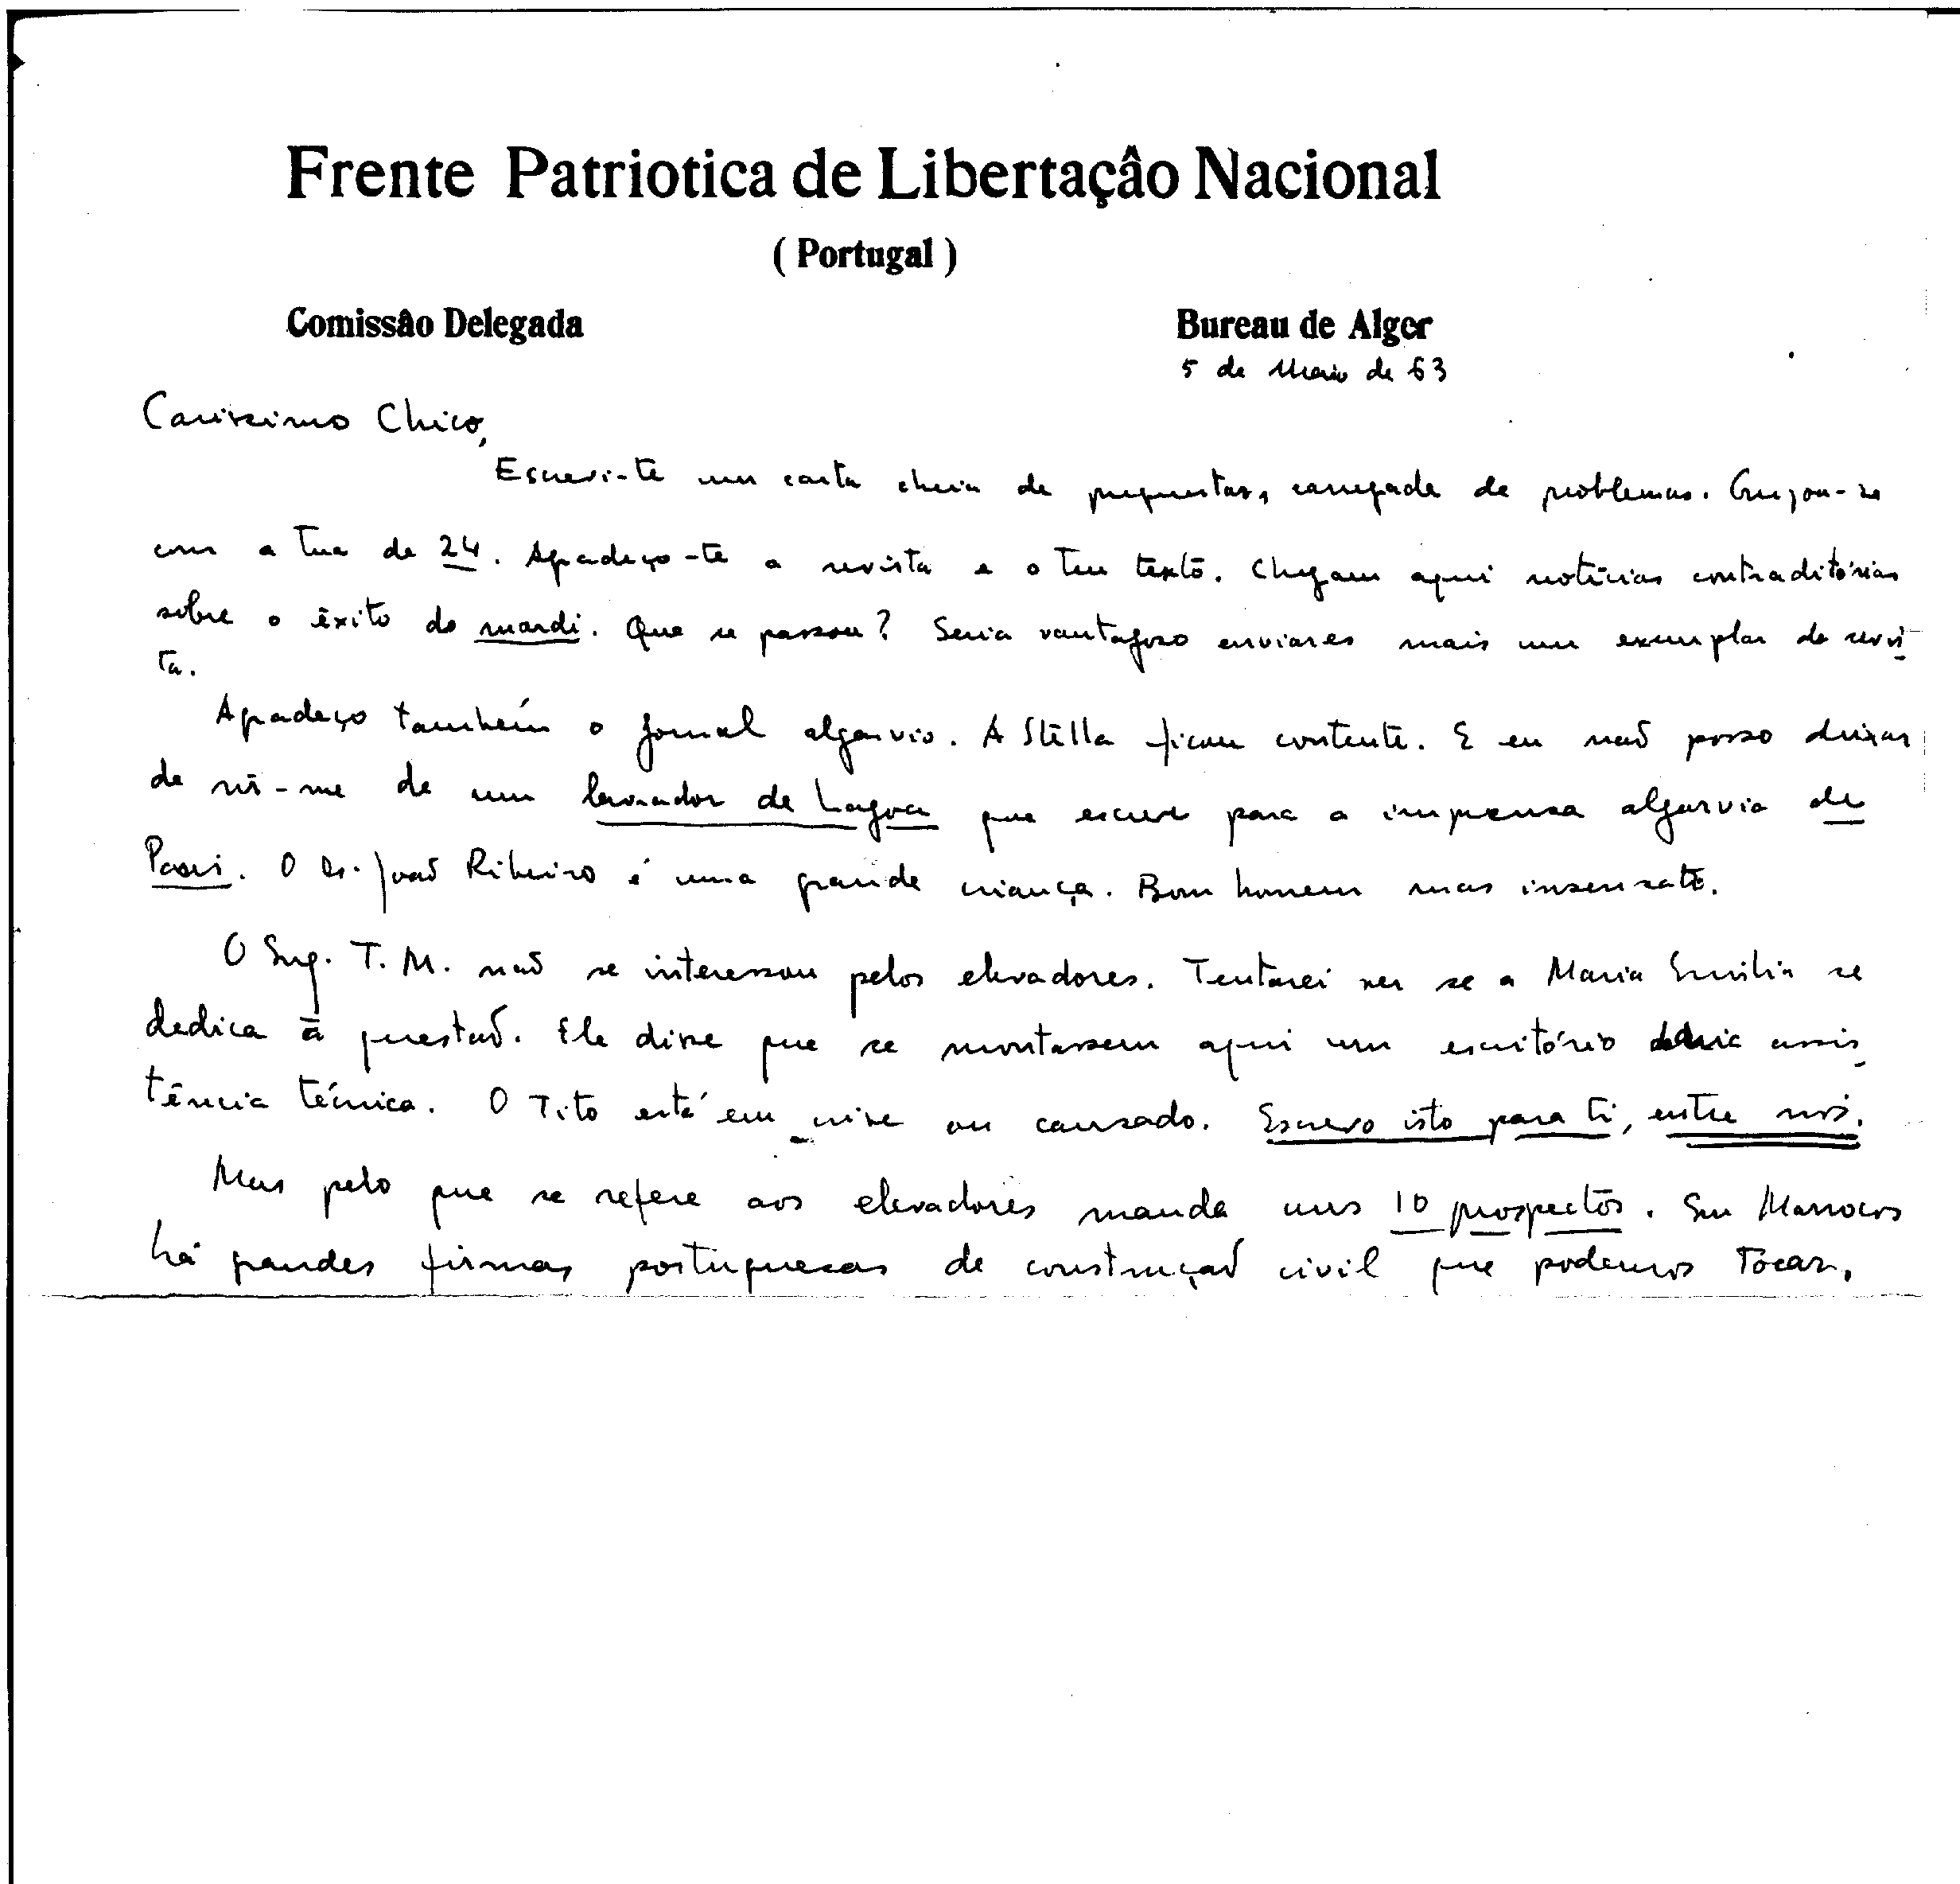 Frente Patriotica de Libertaçâo Nacional
( Portugal )
Comissâo Delegada
Bureau de Alger
5 de Maio de 63
Carissimo Chico,
Escrevi-te um carta cheia de perguntas, carregada de problemas. Cruzou-se
com a tua de 24. Agradeço-te a revista e o teu texto. Chegam aqui notícias contraditórias
sobre o êxito do mardi. Que se passou? Seria vantajoso enviares mais um exemplar da revis-
ta.
Agradeço também o jornal algarvio. A Stella ficou contente. E eu não posso deixar
de rir-me de um lavrador de Lagoa que escreve para a imprensa algarvia de
Paris. O Dr. João Ribeiro é uma grande criança. Bom homem mas insensato.
O Eng. T. M. não se interessou pelos elevadores. Tentarei ver se a Maria Emilia se
dedica à questão. Ele disse que se montassem aqui um escritório daria assis-
tência técnica. O Tito está em crise ou cansado. Escrevo isto para ti, entre nós.
Mas pelo que se refere aos elevadores manda uns 10 prospectos. Em Marrocos
há grandes firmas portuguesas de construção civil que podemos tocar.